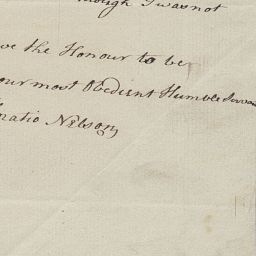 though I was not
ve the Honour to be
our most Obedient Humble Servan
oratio Nelson